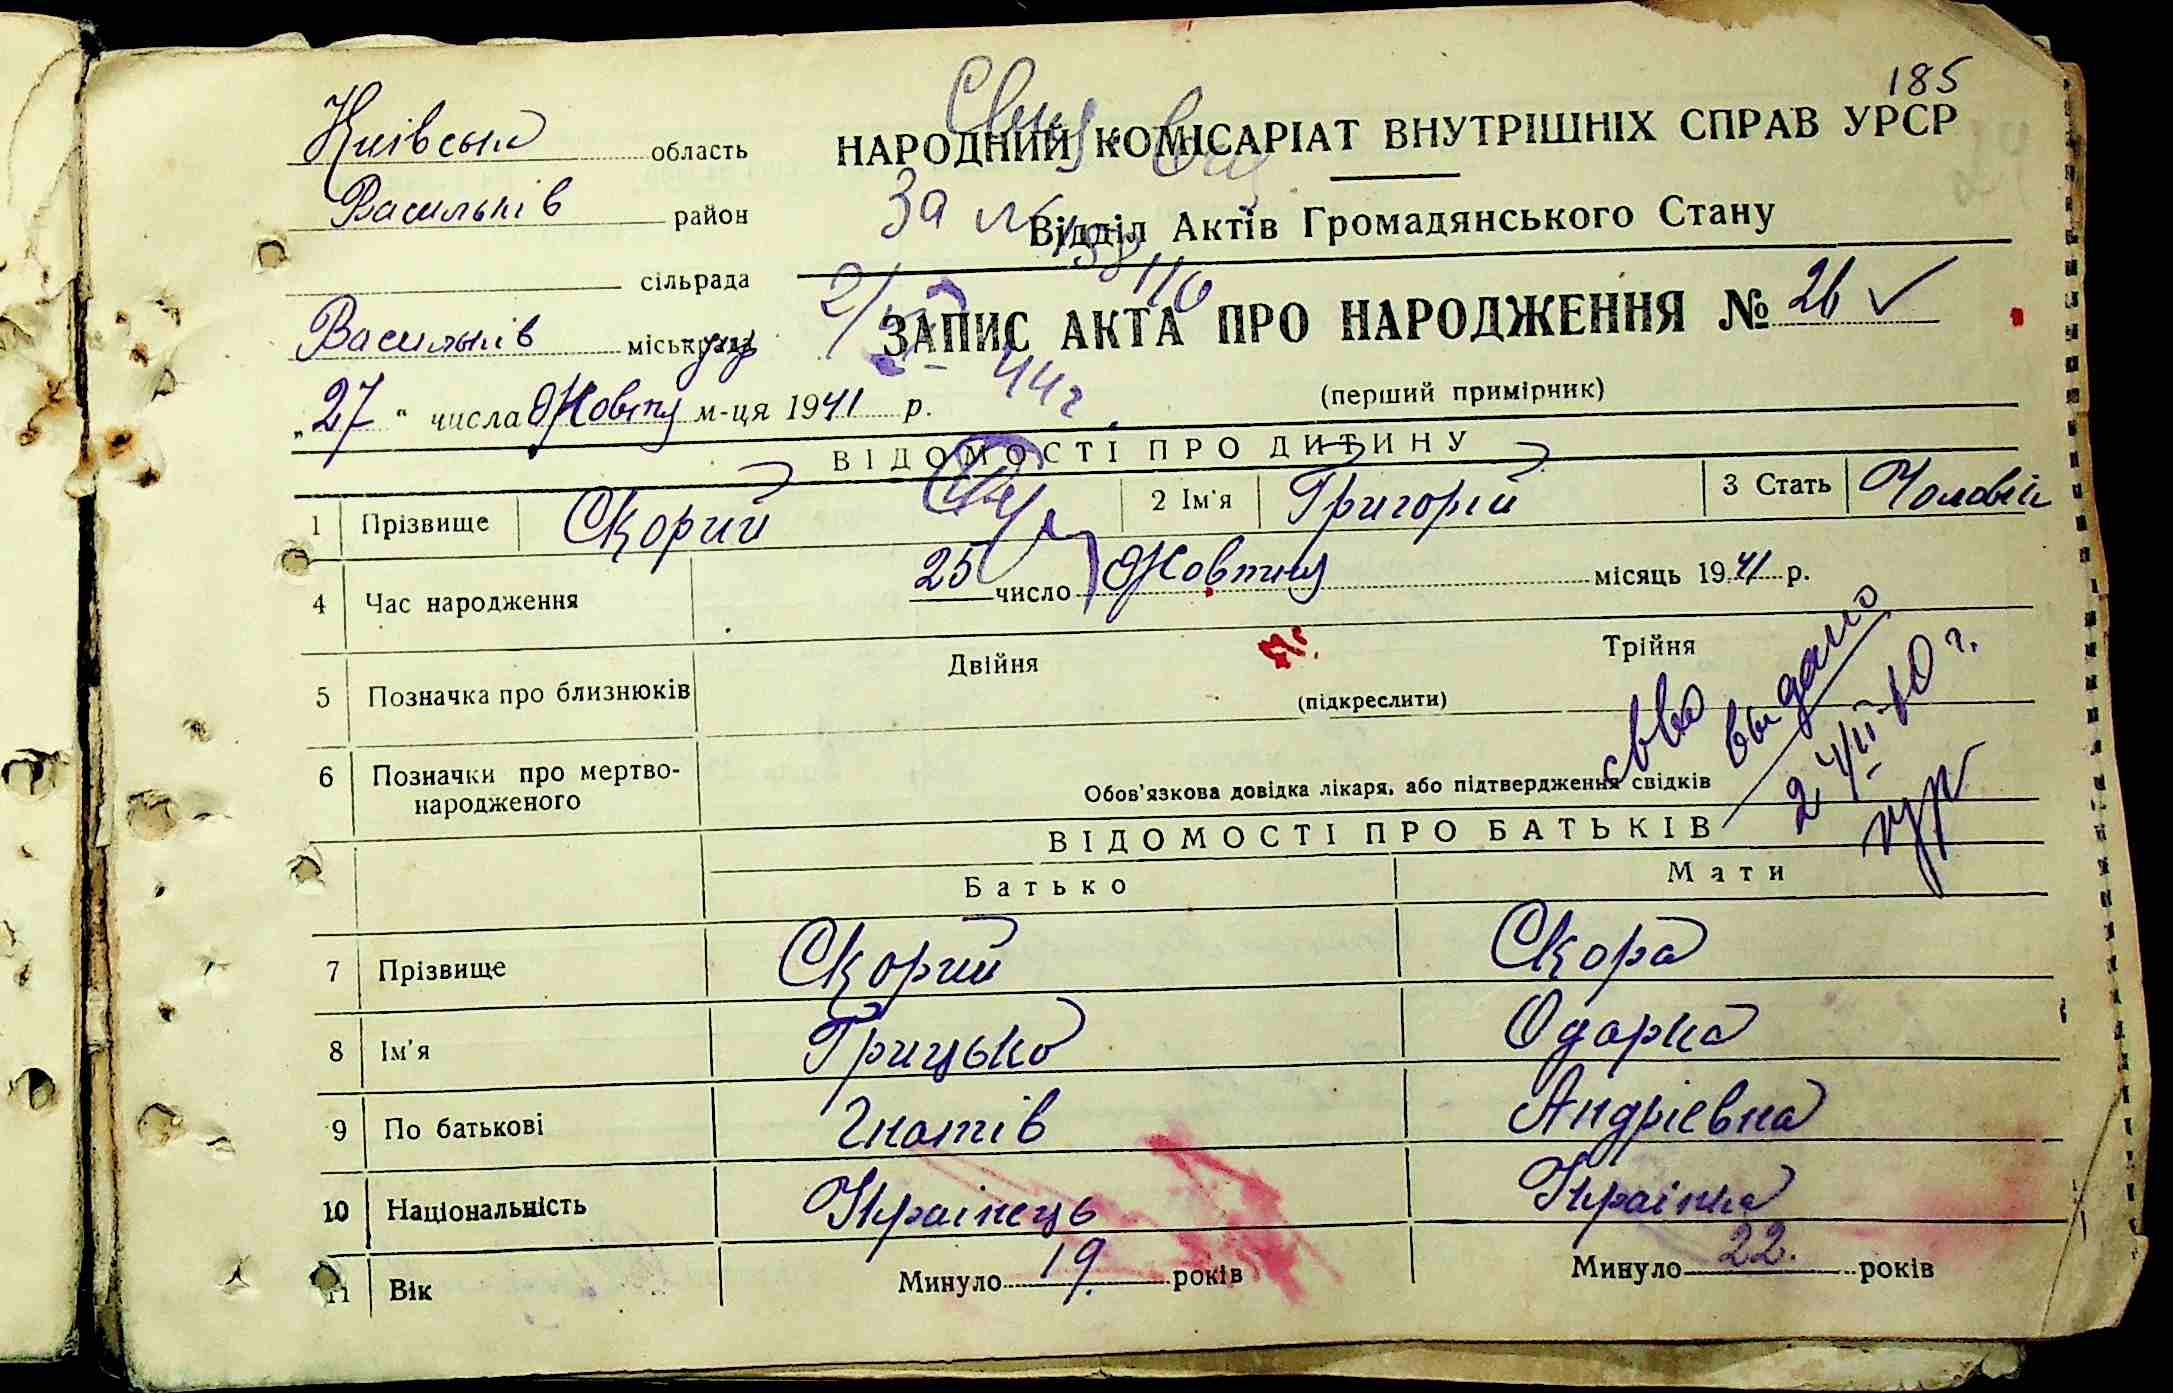 185
Київська область
НАРОДНИЙ КОМІСАРІАТ ВНУТРІШНІХ СПРАВ УРСР
Васильків район
За №
Відділ Актів Громадянського Стану
сільрада
ЗАПИС АКТА ПРО НАРОДЖЕННЯ № 26 ✓
Васильків міськрада
44 г.
(перший примірник)
„27" числа Жовтня м-ця 1941 р.
ВІДОМОСТІ ПРО ДИТИНУ
1 Прізвище Скорий 2 Ім'я Григорій 3 Стать Чоловік
4 Час народження 25 число Жовтня місяць 1941 р.
5 Позначка про близнюків Двійня Трійня
(підкреслити)
6 Позначки про мертво-
народженого
Обов'язкова довідка лікаря, або підтвердження свідків
выдано
ВІДОМОСТІ ПРО БАТЬКІВ
Батько Мати
7 Прізвище Скорий Скора
8 Ім'я Грицько Одарка
9 По батькові Гнатів Андрієвна
10 Національність Українець Українка
11 Вік Минуло 19 років Минуло 22. років